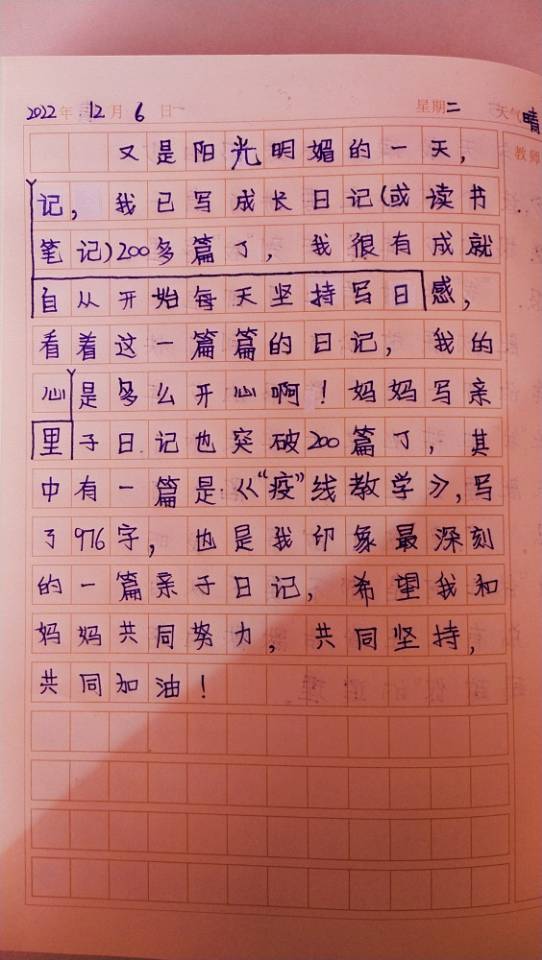 2022年 12月 6日 星期二 天气晴
教师
又是阳光明媚的一天，
记，我已写成长日记(或读书
笔记)200多篇了，我很有成就
自从开始每天坚持写日感，
看着这一篇篇的日记，我的
心是多么开心啊！妈妈写亲
里子日记也突破200篇了，其
中有一篇是《“疫”线教学》，写
了976字，也是我印象最深刻
的一篇亲子日记，希望我和
妈妈共同努力，共同坚持，
共同加油！